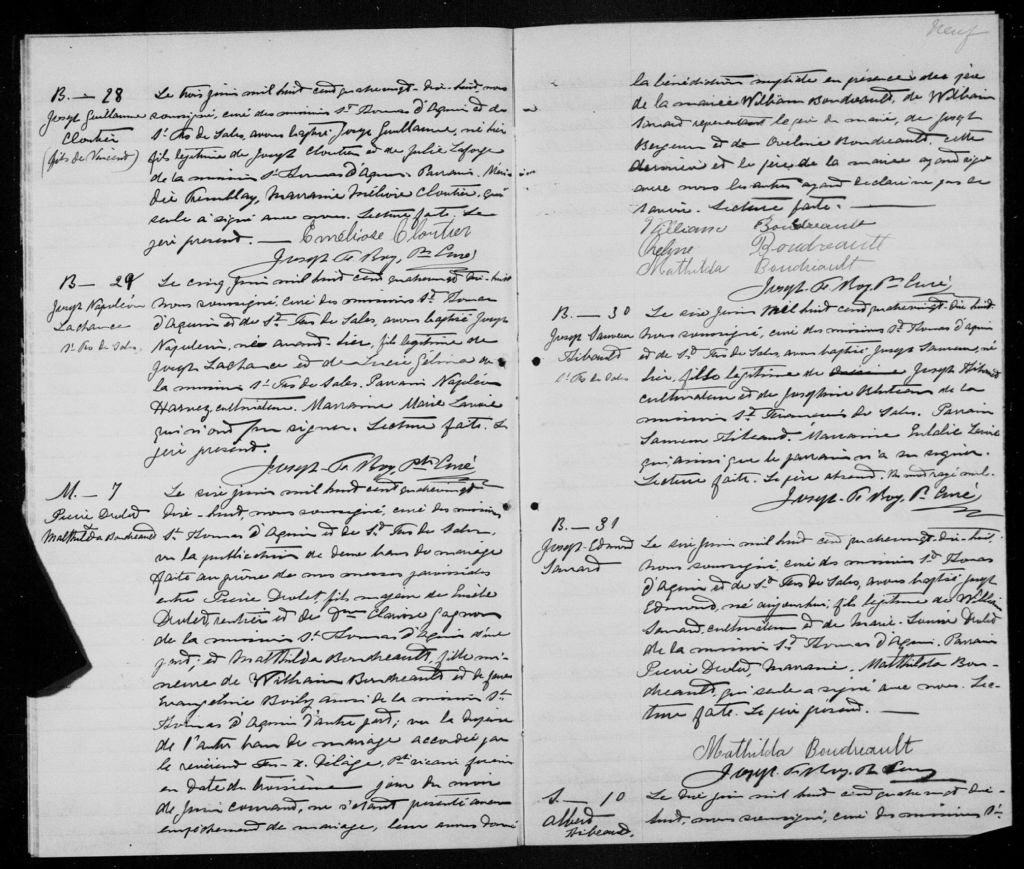 B. — 28
Joseph Guillaume
Cloutier
(fils de Vincent)
Le trois juin mil huit cent quatrevingt-dix-huit, nous
soussigné, curé des missions St Thomas d'Aquin et de
St Frs de Sales, avons baptisé Joseph Guillaume, né hier
fils legitime de Joseph Cloutier et de Julie Laforge
de la mission St Thomas d'Aquin. Parrain,
Tremblay, Marraine Méliore Cloutier, qui
seule a signé avec nous. Lecture faite. Le
père présent. —
Emélirose Cloutier
Joseph Roy, Ptre Curé
B — 29
Joseph Napoléon
Lachance
St Frs de Sales
Le cinq juin mil huit cent quatrevingt dix-huit
nous soussigné, curé des missions St Thomas
d'Aquin et de St Frs de Sales, avons baptisé Joseph
Napoléon, né avant-hier, fils legitime de
Joseph Lachance et de de
la mission St Frs de Sales. Parrain Napoléon
Harvey, cultivateur. Marraine Marie Lavoie
qui n'ont pu signer. Lecture faite. Le
père présent.
Joseph Roy Ptre Curé
M. — 7
Pierre Drolet
Mathilda Boudreault
Le six juin mil huit cent quatrevingt
dix-huit, nous soussigné, curé des missions
St Thomas d'Aquin et de St Frs de Sales,
vu la publication de deux bans de mariage
faite au prône de nos messes paroissiales
entre Pierre Drolet, fils majeur de
Drolet, rentier et de Dme Elarise Gagnon
de la mission St Thomas d'Aquin d'une
part, et Mathilda Boudreault, fille mi-
neure de William Boudreault et de feue
Evangeline Boily aussi de la mission St
Thomas d'Aquin d'autre part; vu la dispense
de l'autre ban de mariage accordée par
le révérend Frs-X. Délâge, Ptre vicaire forain
en date du troisième jour du mois
de juin courant, ne s'étant présenté aucun
empêchement de mariage, leur avons donné
neuf
la bénédiction nuptiale en présence des père
de la mariée William Boudreault, de William
Simard représentant le père du marié, de Joseph
Bergeron et de Boudreault, cette
dernière et le père de la mariée ayant signé
avec nous les autres ayant déclaré ne pas le
savoir. Lecture faite. —
William Boudreault
Boudreault
Mathilda Boudriault
Joseph Roy, Ptre Curé
B. — 30
Joseph Samson
Thibault
St Frs de Sales
Le six juin mil huit cent quatrevingt dix huit
nous soussigné, curé des missions St Thomas d'Aquin
et de St Frs de Sales, avons baptisé Joseph Samson, né
hier, fils legitime de Joseph Thibault
cultivateur et de Josephine de la
mission St Francois de Sales. Parrain
Samson Thibeaud. Marraine Eulalie Lavoie
qui ainsi que le parrain n'a su signer.
Lecture faite. Le père absent. Un mot rayé nul.
Joseph Roy, Ptre Curé
B. — 31
Joseph-Edmond
Savard
Le six juin mil huit cent quatrevingt-dix-huit,
nous soussigné, curé des missions St Thomas
d'Aquin et de St Frs de Sales, avons baptisé Joseph
Edmond, né aujourd'hui, fils legitime de William
Savard, cultivateur et de Marie-Louise Drolet
de la mission St Thomas d'Aquin. Parrain
Pierre Drolet, Marraine, Mathilda Bou-
dreault, qui seule a signé avec nous. Lec-
ture faite. Le père présent. —
Mathilda Boudreault
Joseph Roy, Ptre Curé
S — 10
Albert
Thibeaud.
Le dix juin mil huit cent quatrevingt dix-
huit, nous soussigné, curé des missions St